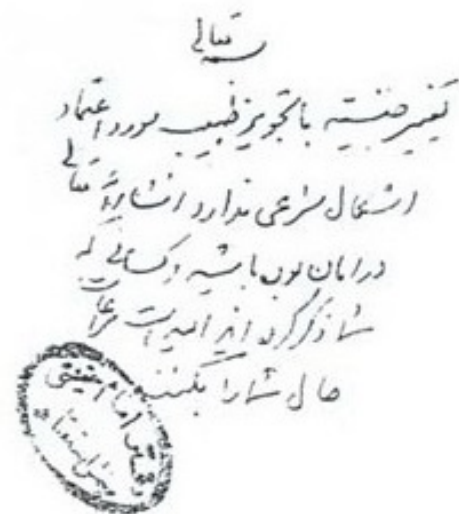 بسمه تعالی
تغییر جنسیه با تجویز طبیب مورد اعتماد
اشکال شرعی ندارد انشاءالله تعالی
در امان بوده باشید و کسانی که
شما ذکر کرده‌اید امید است مراعات
حال شما را بکنند
دفتر امام خمینی
بخش استفتاء